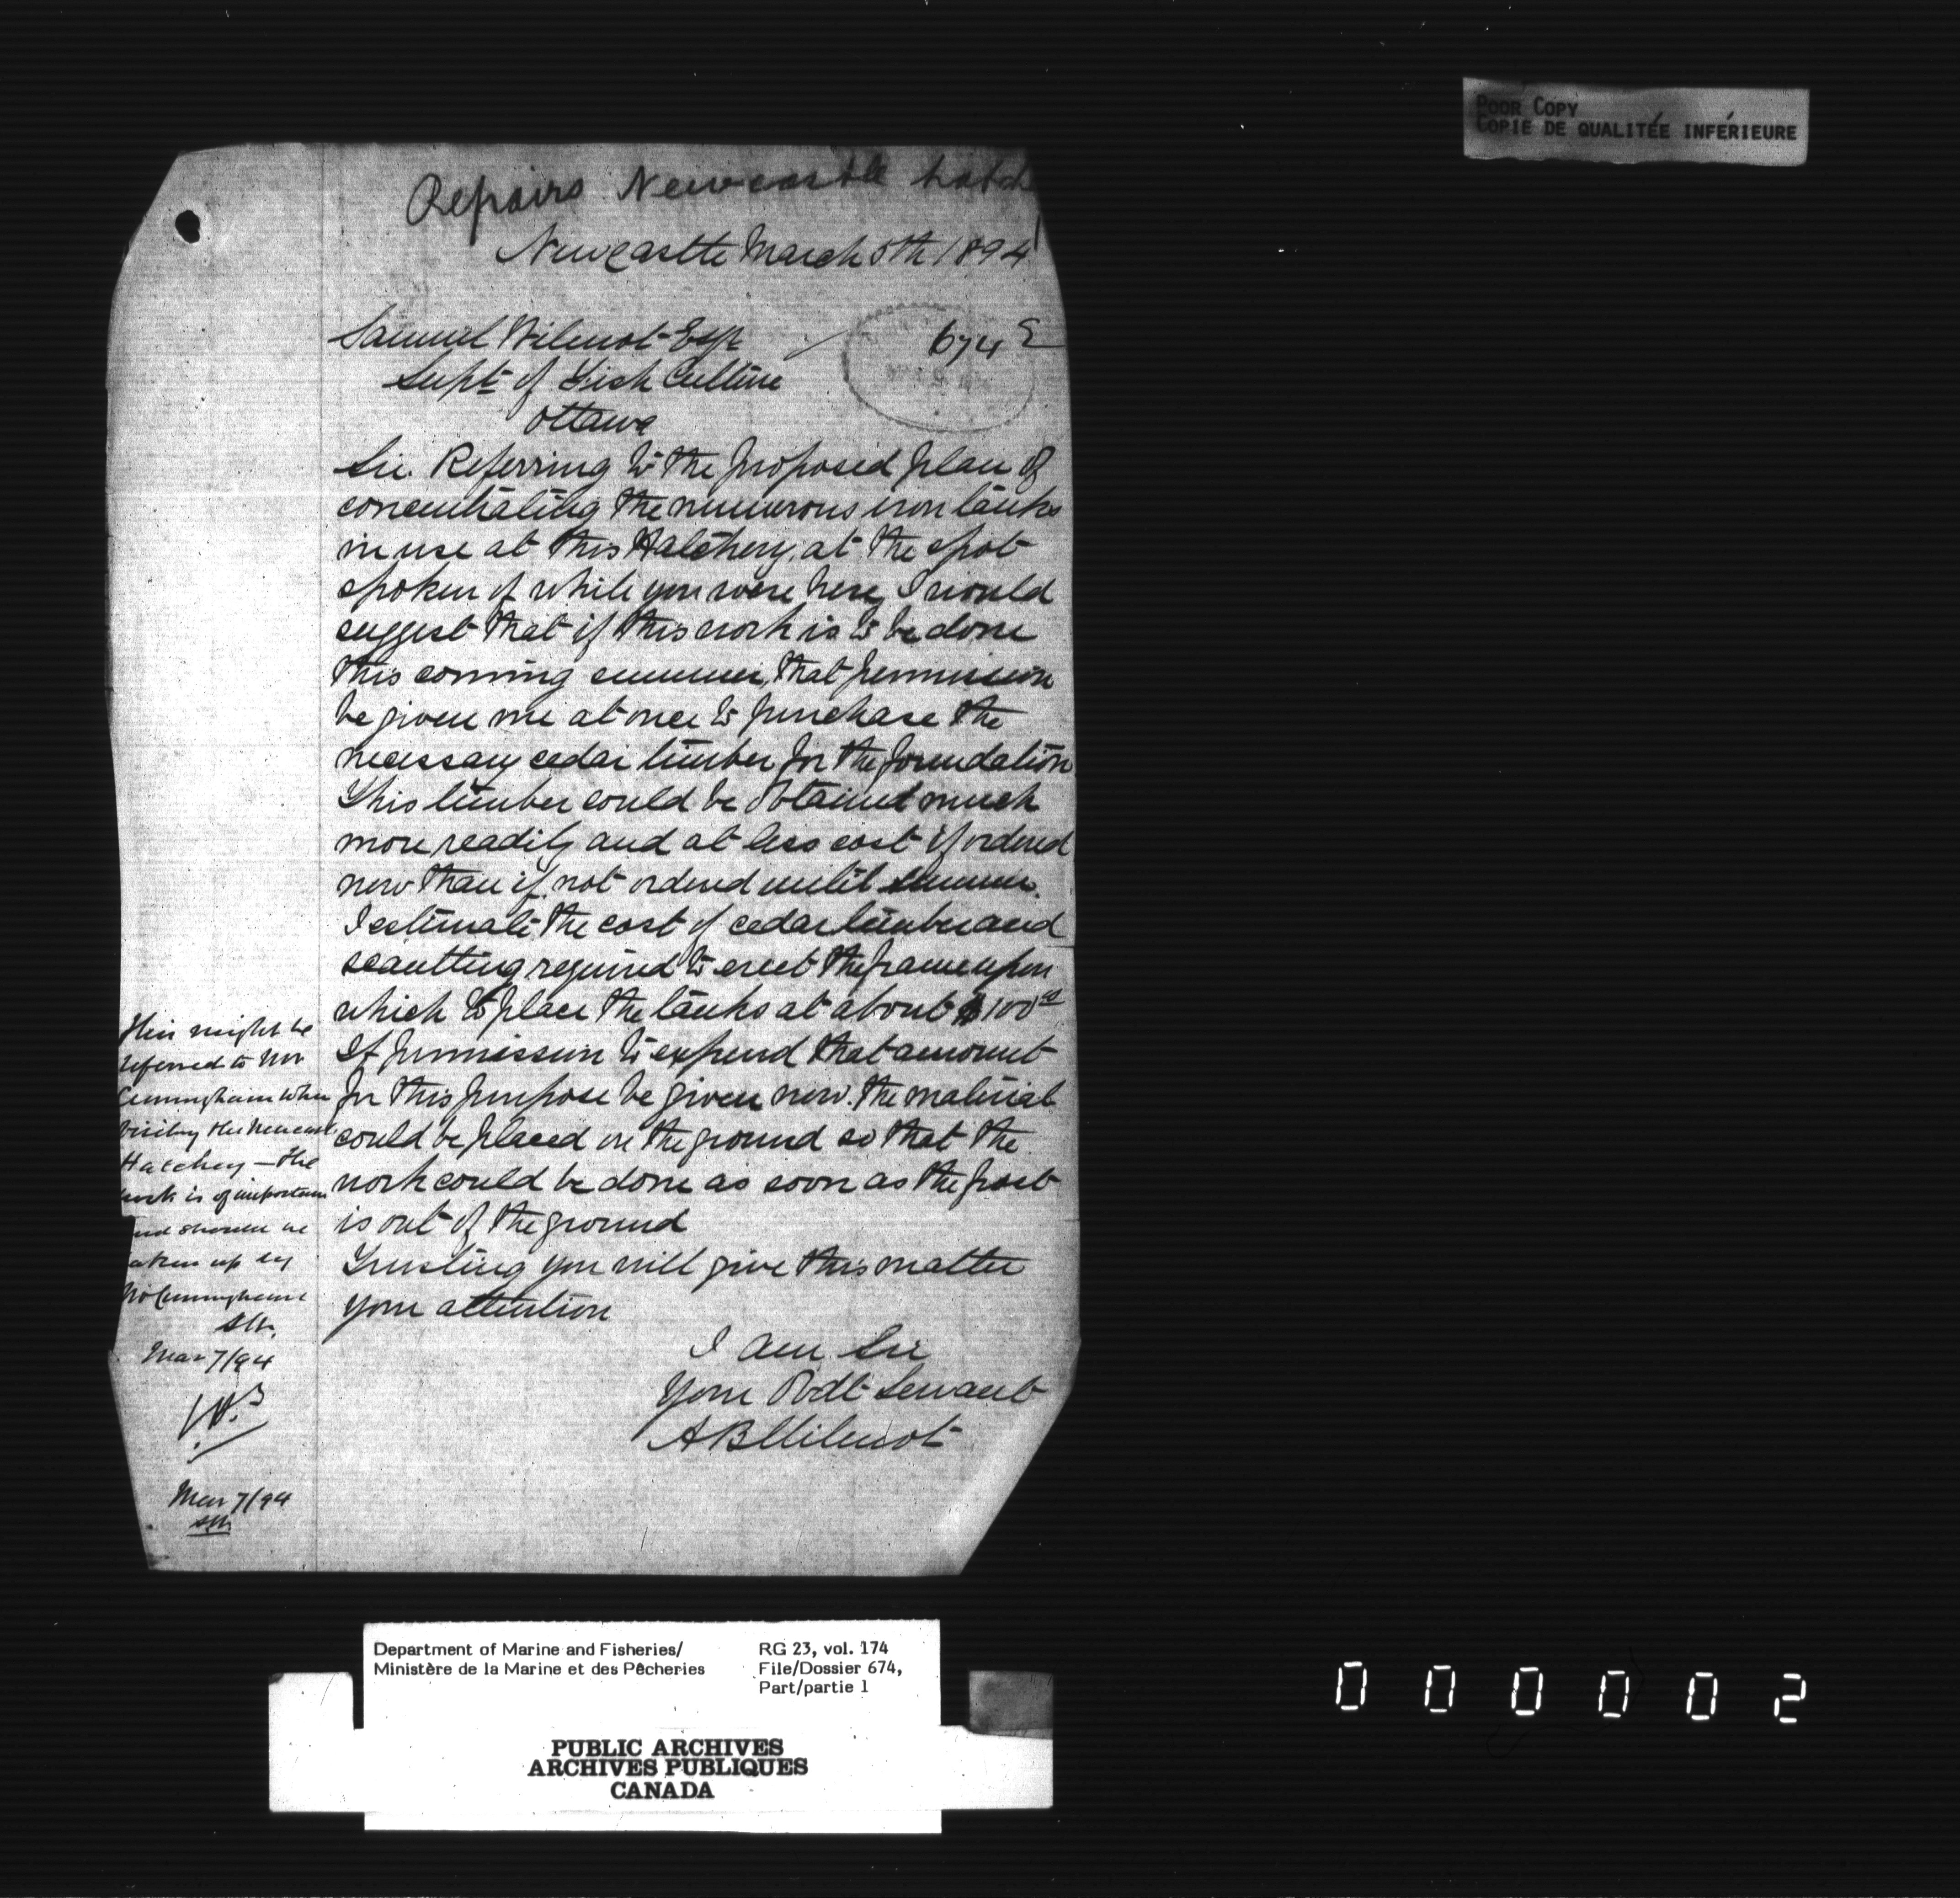 POOR COPY
COPIE DE QUALITÉE INFÉRIEURE
Repairs Newcastle hatch
Newcastle March 5th 1894
674
Samuel Wilmot Esqr
Supt of Fish Culture
Ottawa
Sir. Referring to the proposed plan of
concentrating the numerous iron tanks
in use at this Hatchery, at the spot
spoken of while you were here, I would
suggest that if this work is to be done
this coming summer, that permission
be given me at once to purchase the
necessary cedar timber for the foundation
This timber could be obtained much
more readily and at less cost if ordered
now than if not ordered until summer.
I estimate the cost of cedar timber and
scantling required to erect the frame upon
which to place the tanks at about $100
If permission to expend that amount
for this purpose be given now. the material
could be placed on the ground so that the
work could be done as soon as the frost
is out of the ground
Trusting you will give this matter
your attention
I am Sir
Your Obdt Servant
A B Wilmot
This might be
referred to Mr
Cunningham when
visiting the Newcastl
Hatchery — the
work is of importan
and should be
taken up by
Mr Cunningham
SW.
Mar 7/94
Mar 7/94
SW
Department of Marine and Fisheries/
Ministère de la Marine et des Pêcheries
RG 23, vol. 174
File/Dossier 674,
Part/partie 1
PUBLIC ARCHIVES
ARCHIVES PUBLIQUES
CANADA
000002